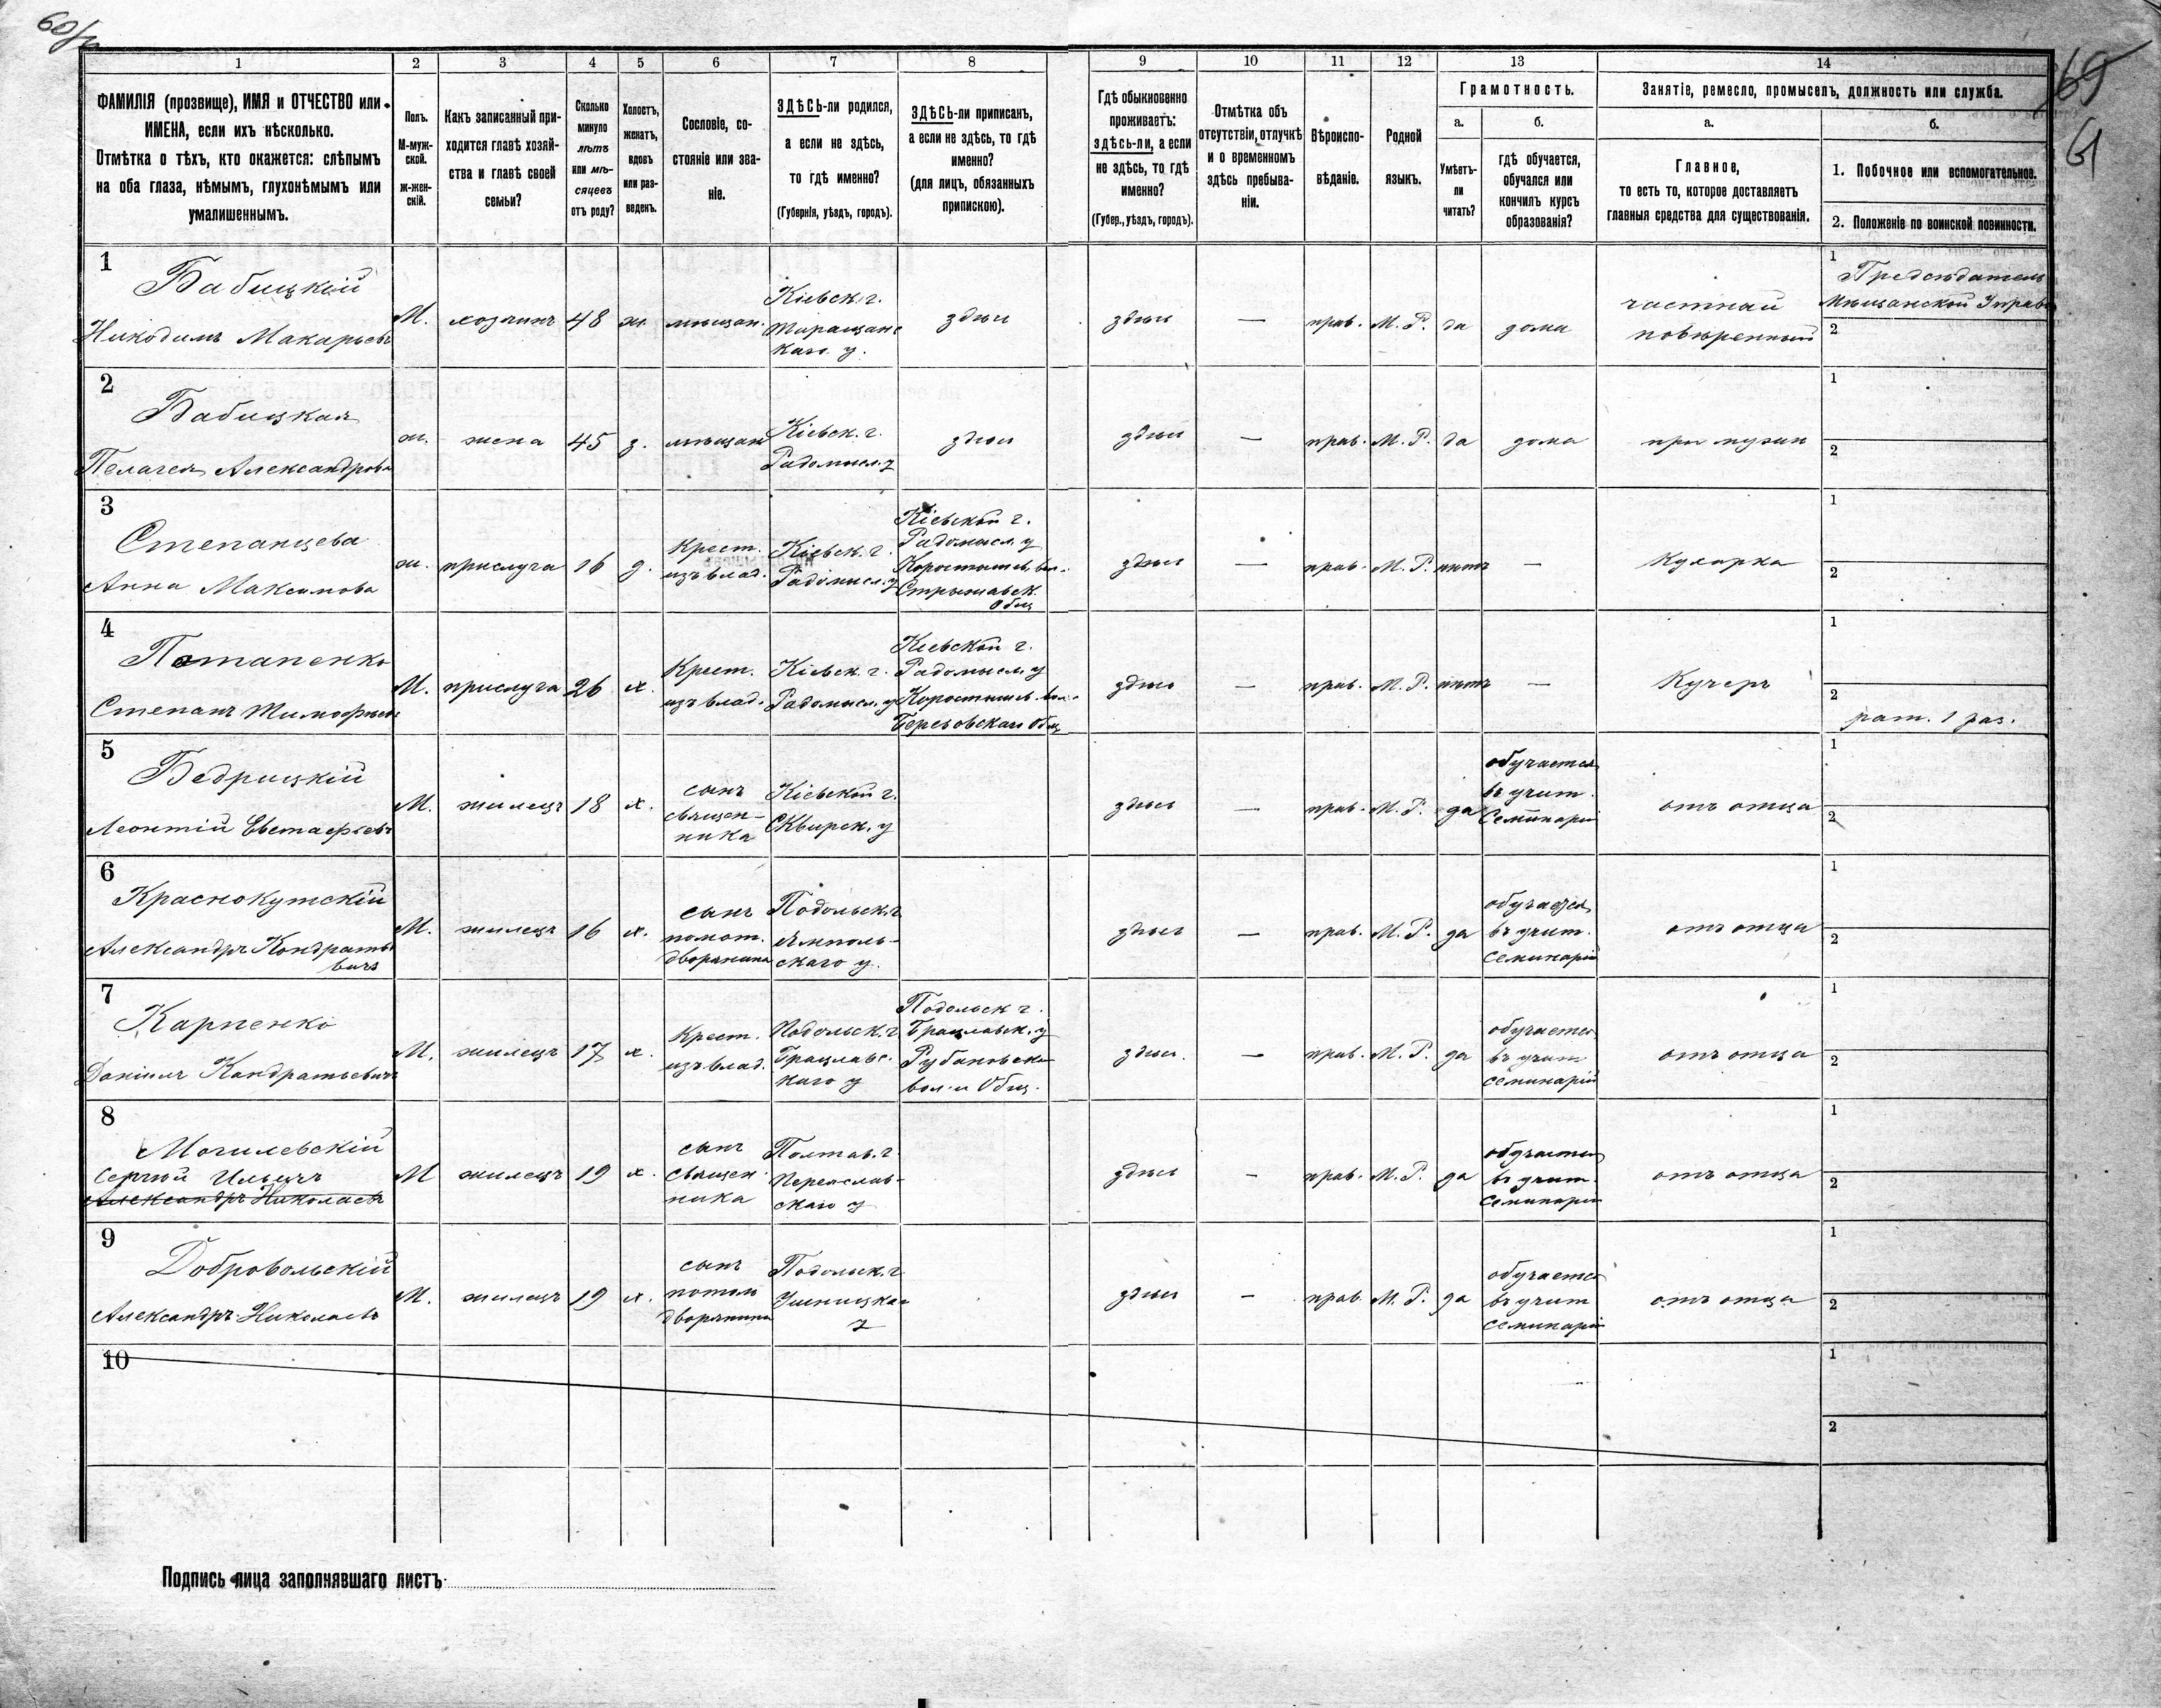 60/
69
61
1 2 3 4 5 6 7 8 9 10 11 12 13 14
ФАМИЛІЯ (прозвище), ИМЯ и ОТЧЕСТВО или
ИМЕНА, если ихъ нѣсколько.
Отмѣтка о тѣхъ, кто окажется: слѣпымъ
на оба глаза, нѣмымъ, глухонѣмымъ или
умалишеннымъ.
Полъ.
М-муж-
ской.
Ж-жен-
скій.
Какъ записанный при-
ходится главѣ хозяй-
ства и главѣ своей
семьи?
Сколько
минуло
лѣтъ
или мѣ-
сяцевъ
отъ роду?
Холостъ,
женатъ,
вдовъ
или раз-
веденъ.
Сословіе, со-
стояніе или зва-
ніе.
ЗДѢСЬ-ли родился,
а если не здѣсь,
то гдѣ именно?
(Губернія, уѣздъ, городъ).
ЗДѢСЬ-ли приписанъ,
а если не здѣсь, то гдѣ
именно?
(для лицъ, обязанныхъ
припискою).
Гдѣ обыкновенно
проживаетъ:
здѣсь-ли, а если
не здѣсь, то гдѣ
именно?
(Губер., уѣздъ, городъ).
Отмѣтка объ
отсутствіи, отлучкѣ
и о временномъ
здѣсь пребыва-
ніи.
Вѣроиспо-
вѣданіе.
Родной
языкъ.
Грамотность.
а.
Умѣетъ-
ли
читать?
б.
гдѣ обучается,
обучался или
кончилъ курсъ
образованія?
Занятіе, ремесло, промыселъ, должность или служба.
а.
Главное,
то есть то, которое доставляетъ
главныя средства для существованія.
б.
1. Побочное или вспомогательное.
2. Положеніе по воинской повинности.
1
Бабицкій
Никодимъ Макарьевъ
М.
хозяинъ
48
ж.
мѣщан.
Кіевск. г.
Таращанс
каго у.
здѣсь
здѣсь
—
прав.
М. Р.
да
дома
частный
повѣренный
1
Предсѣдатель
Мѣщанской Управы
2
2
Бабицкая
Пелагея Александрова
ж.
жена
45
з.
мѣщан
Кіевск. г.
Радомысл. у
здѣсь
здѣсь
—
прав.
М. Р.
да
дома
при мужѣ
1
2
3
Степанцева
Анна Максимова
ж.
прислуга
16
д.
Крест.
изъ влад.
Кіевск. г.
Радомысл. у
Кіевской г.
Радомысл. у
Коростышев. вол.
Стрыжавск.
Общ
здѣсь
—
прав.
М. Р.
нѣтъ
—
Кухарка
1
2
4
Потапенко
Степанъ Тимофѣевъ
М.
прислуга
26
х.
Крест.
изъ влад.
Кіевск. г.
Радомысл. у
Кіевской г.
Радомысл. у
Коростышев. вол.
Березовскаго Общ
здѣсь
—
прав.
М. Р.
нѣтъ
—
Кучеръ
1
2
рат. 1 раз.
5
Бедрицкій
Леонтій Евстафьевъ
М.
жилецъ
18
х.
сынъ
священ-
ника
Кіевской г.
Сквирск. у
здѣсь
—
прав.
М. Р.
да
обучается
въ учит.
Семинаріи
отъ отца
1
2
6
Краснокутскій
Александръ Кондратье
вичъ
М.
жилецъ
16
х.
сынъ
потом.
дворянина
Подольск. г
Ямполь-
скаго у.
здѣсь
—
прав.
М. Р.
да
обучается
въ учит.
семинаріи
отъ отца
1
2
7
Карпенко
Даніилъ Кондратьевичъ
М.
жилецъ
17
х.
Крест.
изъ влад.
Подольск. г.
Брацлавс-
каго у
Подольск г.
Брацлавск. у
Рубановской
вол. и Общ.
здѣсь.
—
прав.
М. Р.
да
обучается
въ учит
семинаріи
отъ отца
1
2
8
Могилевскій
Сергѣй Ильичъ
Александръ Николаевъ
М
жилецъ
19
х.
сынъ
священ
ника
Полтав. г.
Переяслав-
скаго у
здѣсь
—
прав.
М. Р.
да
обучается
въ учит.
Семинаріи
отъ отца
1
2
9
Добровольскій
Александръ Николаевъ
М.
жилецъ
19
х.
сынъ
потом
дворянина
Подольск. г.
Ушицкаго
у
здѣсь
—
прав.
М. Р.
да
обучается
въ учит
семинаріи
отъ отца
1
2
10
1
2
Подпись лица заполнявшаго листъ